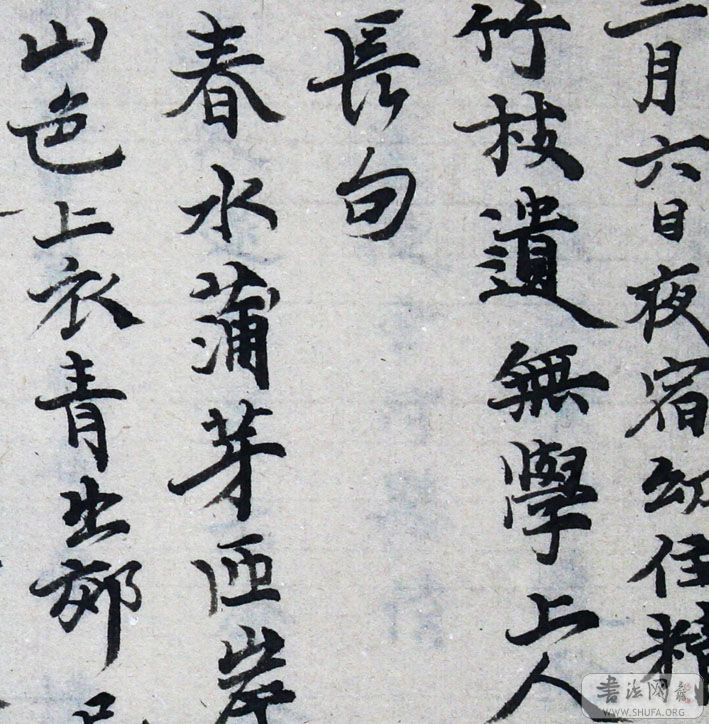 月六日夜宿幻住精
竹枝遺無學上人
長句
春水蒲芽匝岸
山色上衣青出
書法网
WWW.SHUFA.ORG